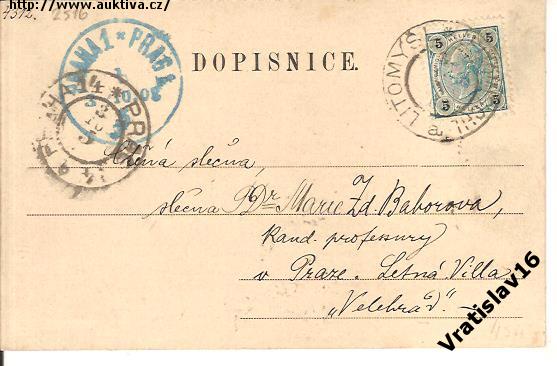 http://www.auktiva.cz/
4392. 2516
PRAHA 1 * PRAG 1.
DOPISNICE.
LITOMYŠL
5 5
5 5
Ctěná slečna,
slečna PhDr Marie Zd. Baborova,
Kand. professury
v Praze. Letná. Villa
„Velehrad".
Vratislav16